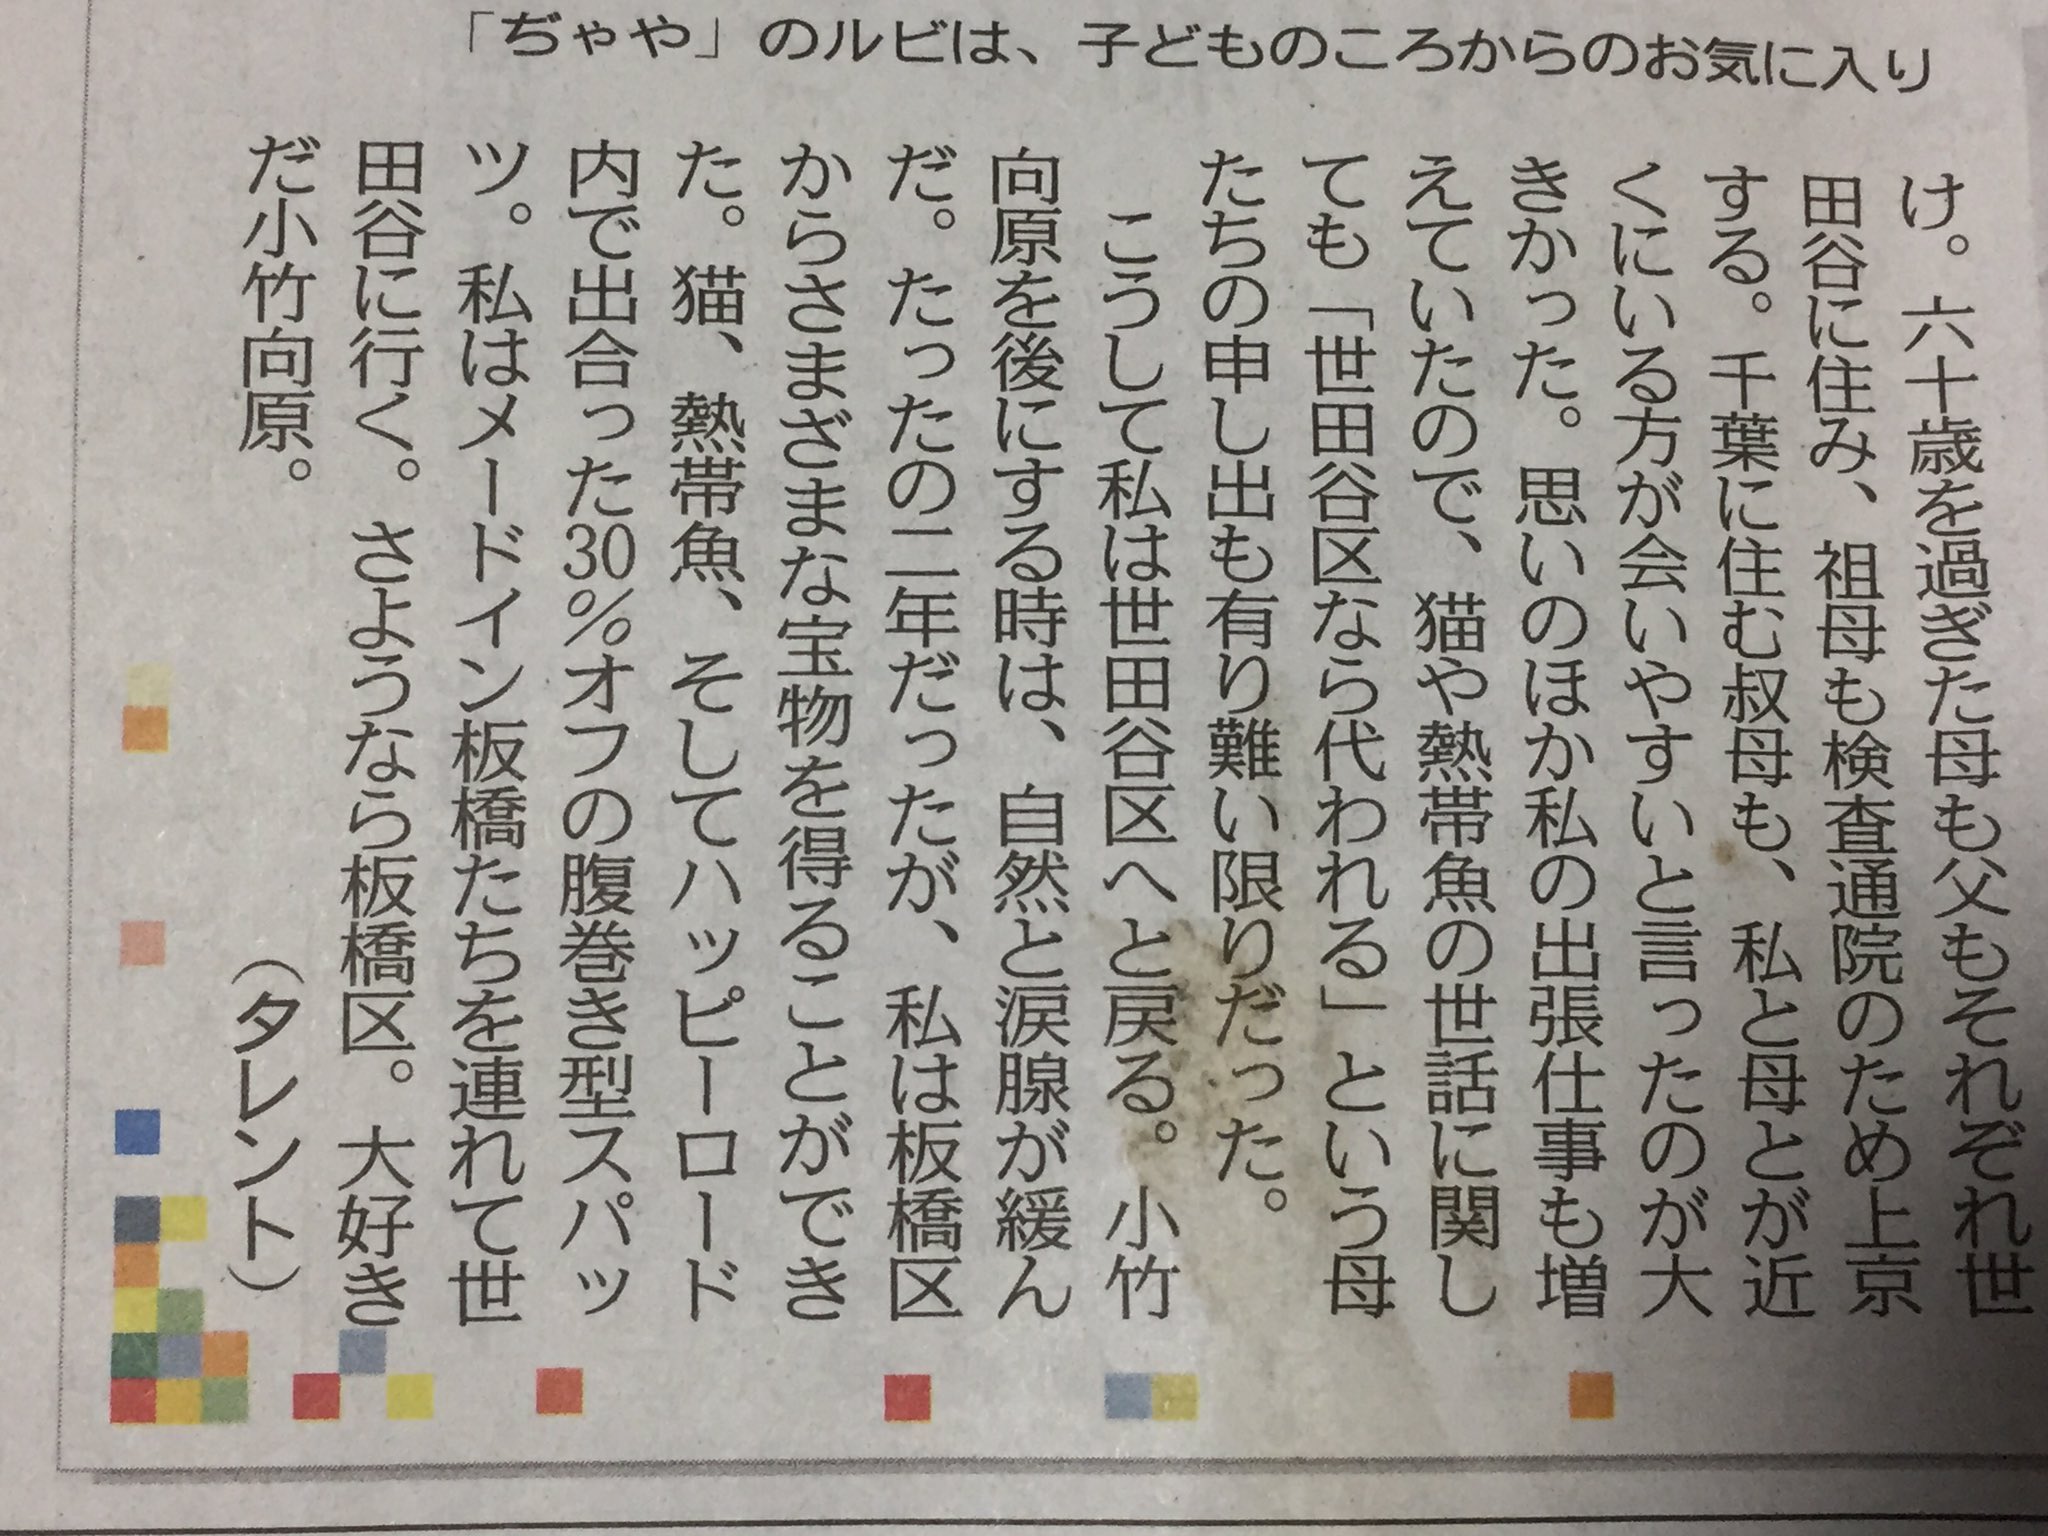 「ぢゃや」のルビは、子どものころからのお気に入り
け。六十歳を過ぎた母も父もそれぞれ世
田谷に住み、祖母も検査通院のため上京
する。千葉に住む叔母も、私と母とが近
くにいる方が会いやすいと言ったのが大
きかった。思いのほか私の出張仕事も増
えていたので、猫や熱帯魚の世話に関し
ても「世田谷区なら代われる」という母
たちの申し出も有り難い限りだった。
こうして私は世田谷区へと戻る。小竹
向原を後にする時は、自然と涙腺が緩ん
だ。たったの二年だったが、私は板橋区
からさまざまな宝物を得ることができ
た。猫、熱帯魚、そしてハッピーロード
内で出合った30%オフの腹巻き型スパッ
ツ。私はメードイン板橋たちを連れて世
田谷に行く。さようなら板橋区。大好き
だ小竹向原。
（タレント）